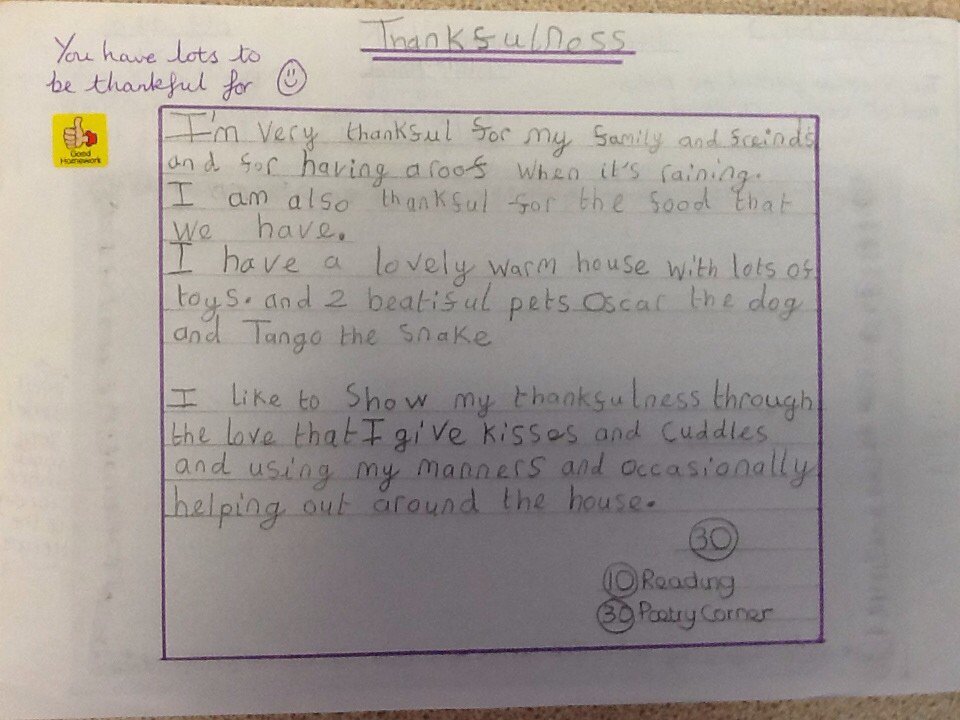 Thankfulness
You have lots to
be thankful for ☺
Good
Homework
I'm very thankful for my family and freinds
and for having a roof when it's raining.
I am also thankful for the food that
we have.
I have a lovely warm house with lots of
toys. and 2 beatiful pets Oscar the dog
and Tango the snake
I like to show my thankfulness through
the love that I give kisses and cuddles
and using my manners and occasionally
helping out around the house.
30
10 Reading
30 Poetry Corner